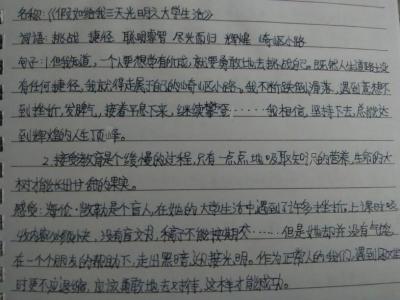 名称:《假如给我三天光明之大学生活》
词语:挑战 捷径 聪明睿智 尽兴而归 辉煌 崎岖小路
句子:1.但我知道,一个人要想学有所成,就要勇敢地去挑战自己。既然人生道路上没
有任何捷径,我就得走属于自己的崎岖小路。我不断跌倒、滑落,遇到意想不
到挫折,发脾气,接着平息下来,继续攀登……我相信,坚持下去,总能达
到辉煌的人生顶峰。
2.接受教育是个缓慢的过程,只有一点点地吸取知识的营养,生命的大
树才能长出甘甜的果实。
感受:海伦·凯勒是个盲人,在她的大学生活中遇到了许多挫折:上课时吸
收内容必须快,没有盲文书,稿子不能按期交……但是她却并没有气馁
在一个个朋友的帮助下,走出黑暗,迎接光明。作为正常人的我们,遇到困难
时更不应退缩,应该勇敢地去对待,这样才能成功。